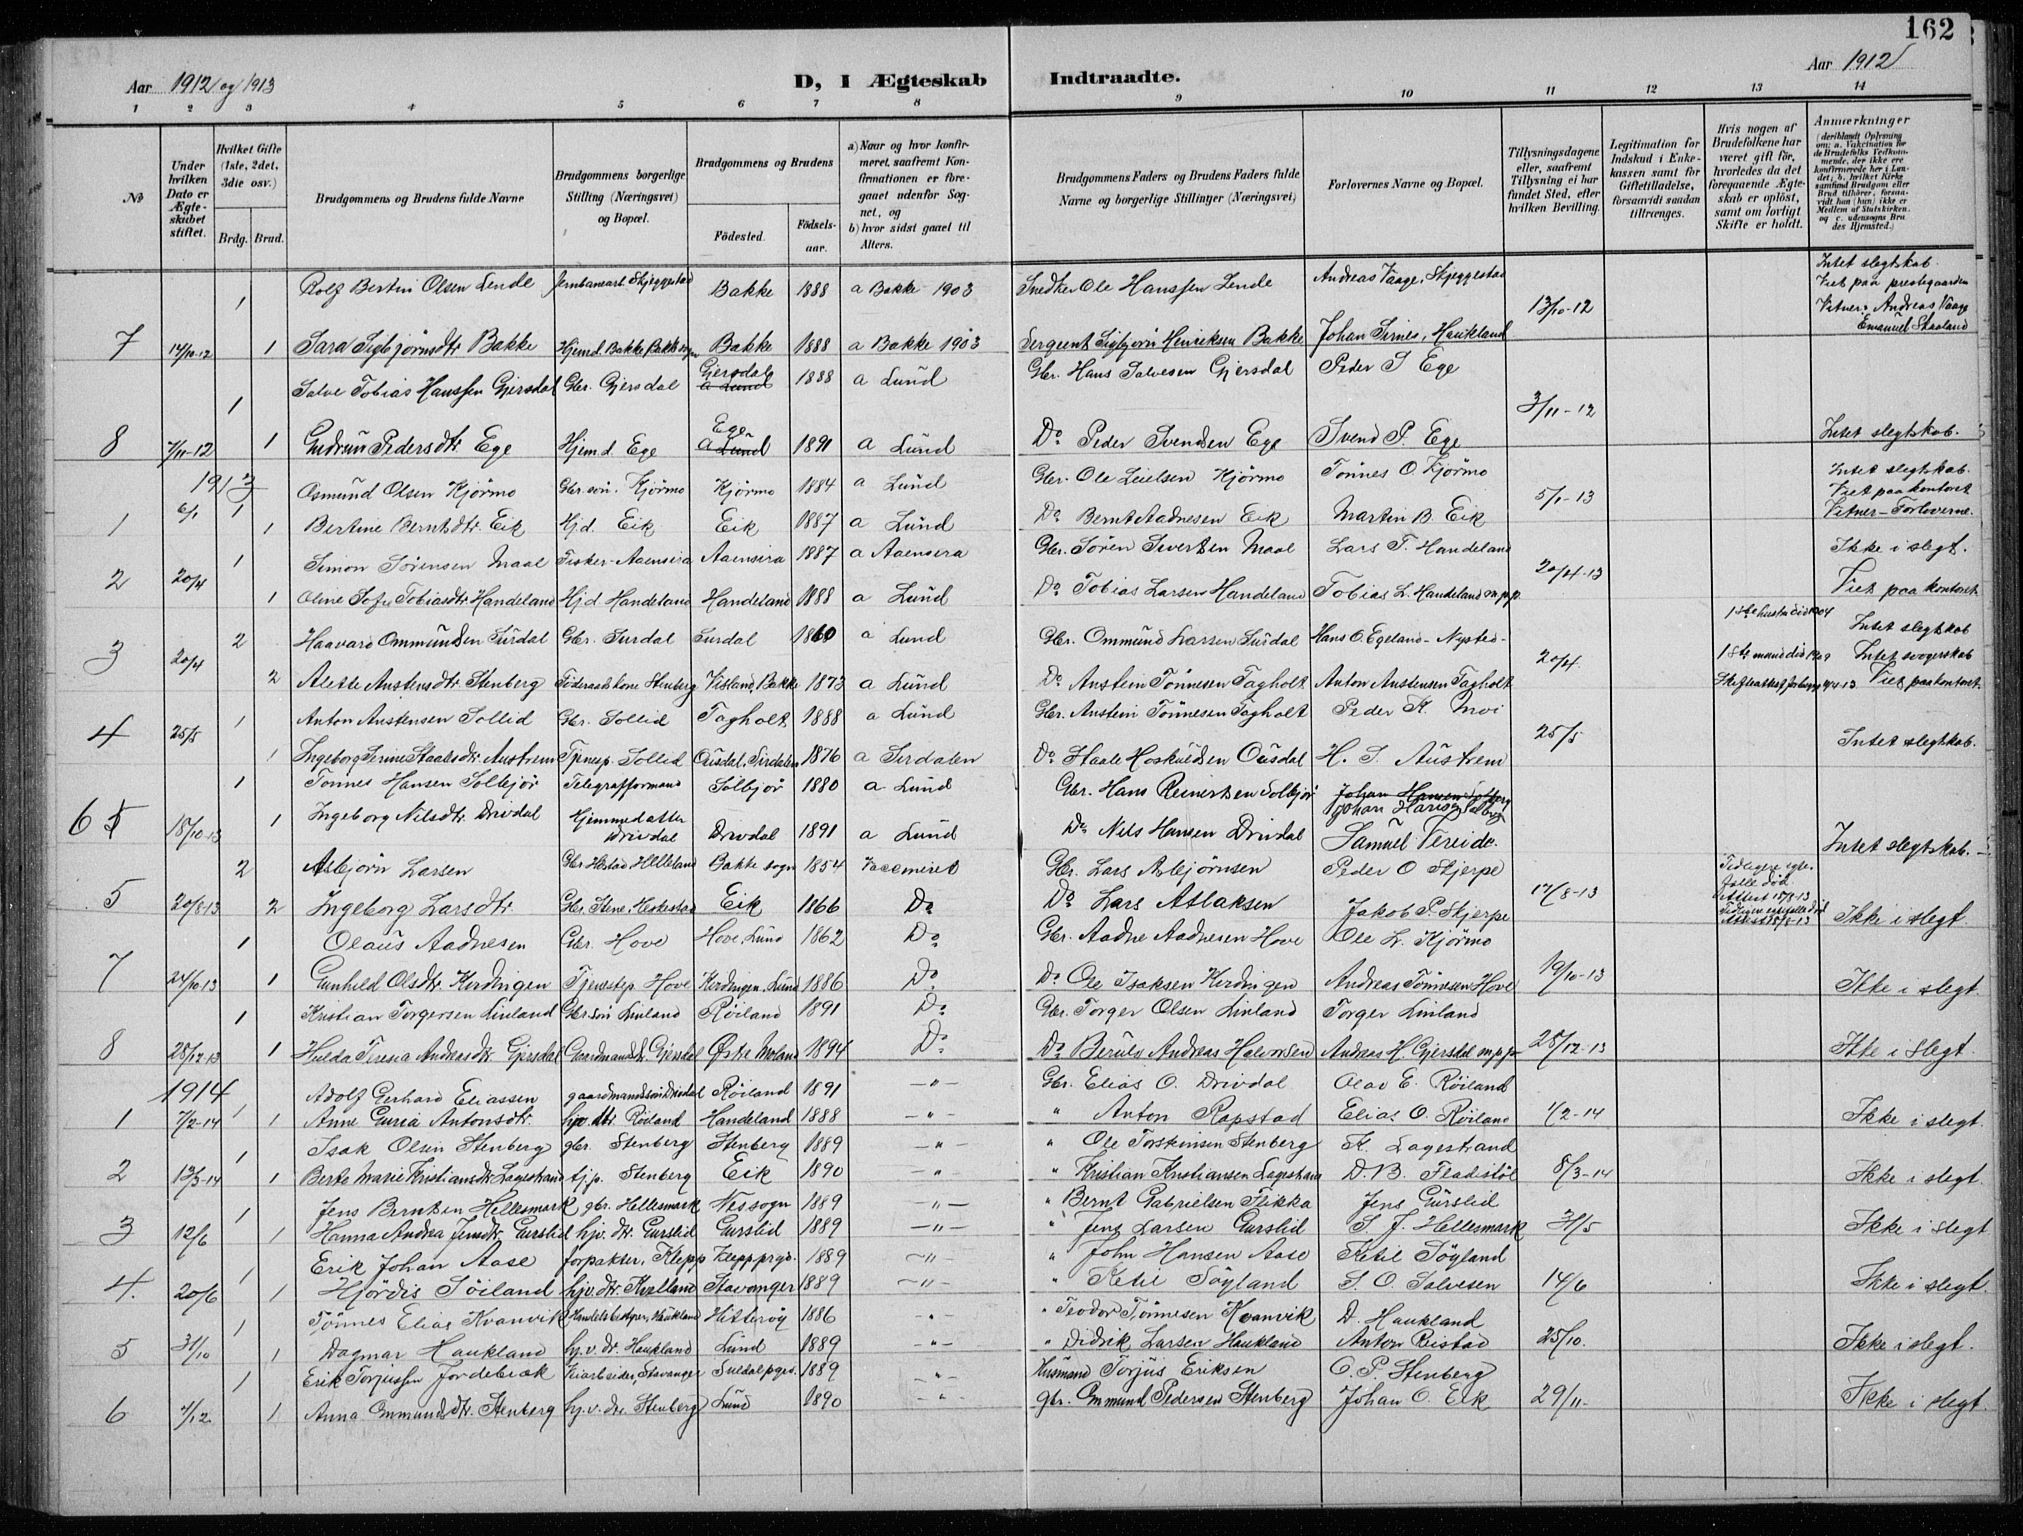 162
Aar 1912 og 1913
D, I Ægteskab Indtraadte.
Aar 1912
1 2 3 4 5 6 7 8 9 10 11 12 13 14
No
Under hvilken Dato er Ægteskabet stiftet.
Hvilket Gifte (1ste, 2det, 3die osv.)
Brdg. Brud.
Brudgommens og Brudens fulde Navne
Brudgommens borgerlige Stilling (Næringsvei) og Bopæl.
Brudgommens og Brudens
Fødested. Fødsels-aar.
a) Naar og hvor konfirmeret, saafremt Konfirmationen er foregaaet udenfor Sognet, og
b) hvor sidst gaaet til Alters.
Brudgommens Faders og Brudens Faders fulde Navne og borgerlige Stillinger (Næringsvei)
Forlovernes Navne og Bopæl.
Tillysningsdagene eller, saafremt Tillysning ei har fundet Sted, efter hvilken Bevilling.
Legitimation for Indskud i Enkekassen samt for Giftetilladelse, forsaavidt saadan tiltrænges.
Hvis nogen af Brudefolkene har været gift før, hvorledes da det foregaaende Ægteskab er opløst, samt om lovligt Skifte er holdt.
Anmærkninger (deriblandt Oplysning om: a. Vakcination for de Brudefolks Vedkommende, der ikke ere konfirmerede her i Landet; b. hvilket Kirkesamfund Brudgom eller Brud tilhører, forsaavidt han (hun) ikke er Medlem af Statskirken, og c. udensogns Brudes Hjemsted.)
1 Rolf Bertin Olsen Lende Jernbanearb. Skjeggestad Bakke 1888 a Bakke 1903 Snedker Ole Hanssen Lende Andreas Vaage, Skjeggestad 13/10-12 Intet slegtskab. Viet paa prestegaarden Vitner: Andreas Vaage Emanuel Skaaland
7 14/10-12 1 Sara Sigbjørnsdtr Bakke Hjemd. Bakke, Bakke sogn Bakke 1888 a Bakke 1903 Sergeant Sigbjørn Henriksen Bakke Johan Sirnes, Haukland
1 Salve Tobias Hanssen Gjersdal Gbr. Gjersdal Gjersdal a Lund 1888 a Lund Gbr. Hans Salvesen Gjersdal Peder S Ege 3/11-12
8 7/11-12 1 Gudrun Pedersdtr. Ege Hjemd. Ege Ege a Lund 1891 a Lund Do Peder Svendsen Ege Svend P. Ege Intet slegtskab.
1913
1 Osmund Olsen Kjørmo Gbr.søn. Kjørmo Kjørmo 1884 a Lund Gbr. Ole Leielsen Kjørmo Tønnes O Kjørmo 5/1-13 Intet slegtskab. Viet paa kontoret Vitner - Forloverne.
1 6/1 1 Bertine Berntsdtr. Eik Hjd. Eik Eik 1887 a Lund Do Bernt Aadnesen Eik Martin B. Eik
1 Simon Sørensen Maal Fisker - Aaensira Aaensira 1887 a Aaensira Gbr. Søren Sivertsen Maal Lars T. Handeland 20/4-13 Ikke i slegt.
2 20/4 1 Oline Sofie Tobiasdtr Handeland Hjd Handeland Handeland 1888 a Lund Do Tobias Larsen Handeland Tobias L. Handeland m.p.p. Viet paa kontoret
2 Haavard Ommundsen Surdal Gbr. Surdal Surdal 1860 a Lund Gbr. Ommund Larsen Surdal Hans O. Egeland - Nysted - 20/4. 1ste hustru død 1904 Intet slegtskab
3 20/4 2 Alette Austensdtr. Stenberg Føderaadskone Stenberg Visland, Bakke 1873 a Lund Do Austein Tønnesen Fagholt Anton Austensen Fagholt 1ste mand død 1909 Skifteattest 4/4-13 Intet svogerskab Viet paa kontoret.
1 Anton Austensen Sollid Gbr. Sollid Fagholt 1888 a Lund Gbr. Austein Tønnesen Fagholt Peder K. Moi 25/5
4 25/5 1 Ingeborg Serine Staalesdtr. Austrem Tjenep. Sollid Ousdal, Sirdalen 1876 a Sirdalen Do Staale Hoskuldsen Ousdal H. S. Austrem Intet slegtskab.
1 Tønnes Hansen Solbjør Telegrafformand Solbjør 1880 a Lund Gbr. Hans Reinertsen Solbjør Johan Hansen Solberg Johan Hansen Solberg
6 5 18/10-13 1 Ingeborg Nilsdtr. Drivdal Hjemmedatter Drivdal Drivdal 1891 a Lund Do Nils Hansen Drivdal Samuel Vereide. Intet slegtskab.
2 Asbjørn Larsen Gbr. Hestad Helleland Bakke sogn 1854 Vaccineret Gbr. Lars Asbjørnsen Peder O Skjerpe 17/8-13
5 20/8-13 2 Ingeborg Larsdtr. Gbr. Stene, Heskestad Eik 1866 Do Do Lars Aslaksen Jakob P. Skjerpe Ikke i slegt.
1 Olaus Aadnesen Gbr. Hove Hove, Lund 1862 Do Gbr. Aadne Aadnesen Hove Ole L. Kjørmo
7 24/10-13 1 Gunhild Olsdtr. Kerdingen Tjenestep. Hove Kerdingen, Lund 1886 Do Do Ole Isaksen Kerdingen Andreas Tønnesen Hove 19/10-13 Ikke i slegt.
1 Kristian Torgersen Linland Gbr. søn Linland Røiland 1891 Do Gbr. Torger Olsen Linland Torger Linland
8 28/12-13 1 Hulda Teresia Andreasdtr Gjersdal Gaardmandsdtr. Gjersdal Østre Moland 1894 Do Do Berulv Andreas Halvorsen Andreas H. Gjersdal m.p.p. 28/12-13 Ikke i slegt.
1914
1 Adolf Gerhard Eliassen gaardmandssøn Drivdal Røiland 1891 — " — Gbr. Elias O. Drivdal Olav E. Røiland
1 7/2-14 1 Anne Guria Antonsdtr. hjv. dtr. Røiland Handeland 1888 — " — " Anton Rapstad Elias O. Røiland 1/2-14 Ikke i slegt.
1 Isak Olsen Stenberg gbr. Stenberg Stenberg 1889 " — " Ole Torstensen Stenberg K. Lagestrand
2 13/3-14 1 Berte Marie Kristiansdtr. Lagestrand tj.p. Stenberg Eik 1890 — " " Kristian Kristiansen Lagestrand D. B. Fladstøl 8/3-14 Ikke i slegt.
1 Jens Berntsen Hellesmark gbr. Hellesmark Nes sogn 1889 — " — " Bernt Gabrielsen Flikka Jens Gurslid
3 12/6 1 Hanna Andrea Jensdtr. Gurslid hjv. dtr. Gurslid Gurslid 1889 — " — " Jens Larsen Gurslid S. J. Hellesmark 31/5 Ikke i slegt
1 Erik Johan Aase forpakter, Klepp Klepp prgd. 1889 — " — " John Hansen Aase Ketil Søyland
4. 20/6 1 Hjørdis Søiland hjv. dtr. Kvelland Stavanger 1889 — " — " Ketil Søyland S. O. Salvesen 14/6 Ikke i slegt.
1 Tønnes Elias Kvanvik Handelsbestyrer, Haukland Hitterøy 1886 - " - " Teodor Tønnesen Kvanvik D. Haukland
5 31/10 1 Dagmar Haukland hj.v. dtr. Haukland Lund 1889 — " — " Didrik Larsen Haukland Anton Reistad 25/10. Ikke i slegt.
1 Erik Torjussen Jordebræk arbeider, Stavanger Suldal pgd. 1889 — " — Husmand Torjus Eriksen O. P. Stenberg
6 4/12 1 Anna Ommundsdtr. Stenberg hj.v. dtr. Stenberg Lund 1890 — " — gbr. Ommund Pedersen Stenberg Johan O. Eik 29/11. Ikke i slegt.